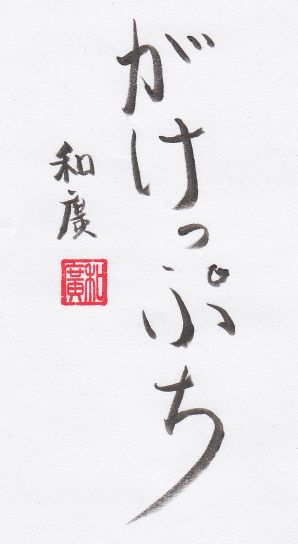 がけっぷち
和廣
和廣